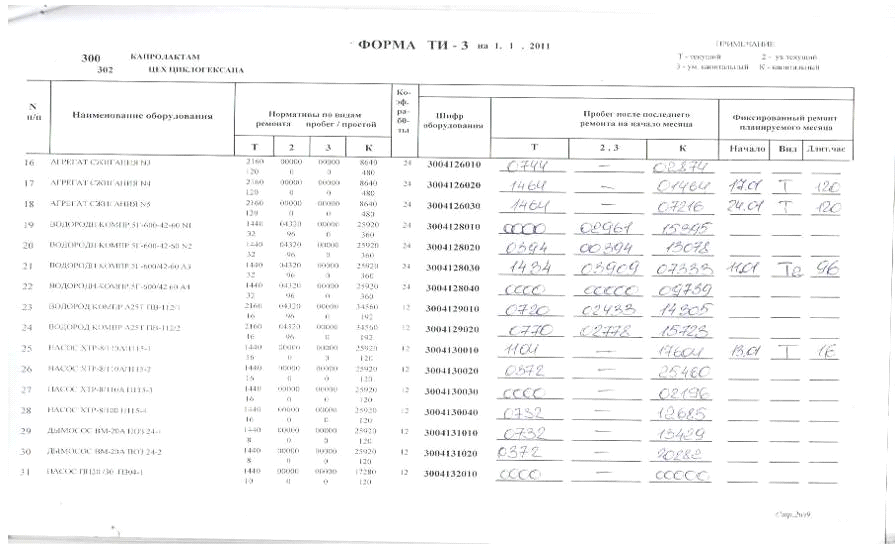 ФОРМА ТИ - 3 на 1. 1 . 2011
ПРИМЕЧАНИЕ
300 КАПРОЛАКТАМ
Т - текущий 2 - ув.текущий
302 ЦЕХ ЦИКЛОГЕКСАНА
3 - ум. капитальный К - капитальный
N п/п Наименование оборудования Нормативы по видам ремонта пробег / простой Ко-эф. ра-бо-ты Шифр оборудования Пробег после последнего ремонта на начало месяца Фиксированный ремонт планируемого месяца
Т 2 3 К Т 2,3 К Начало Вид Длит.час
16 АГРЕГАТ СЖИГАНИЯ N3 2160 00000 00000 8640 24 3004126010 0744 — 02874
120 0 0 480
17 АГРЕГАТ СЖИГАНИЯ N4 2160 00000 00000 8640 24 3004126020 1464 — 01464 17.01 Т 120
120 0 0 480
18 АГРЕГАТ СЖИГАНИЯ N5 2160 00000 00000 8640 24 3004126030 1464 — 07216 24.01 Т 120
120 0 0 480
19 ВОДОРОДН КОМПР. 5Г-600-42-60 N1 1440 04320 00000 25920 24 3004128010 0000 02961 15395
32 96 0 360
20 ВОДОРОДН КОМПР. 5Г-600-42-60 N2 1440 04320 00000 25920 24 3004128020 0394 00394 13078
32 96 0 360
21 ВОДОРОДН КОМПР. 5Г-600/42-60 А3 1440 04320 00000 25920 24 3004128030 1434 03909 07333 11.01 96
32 96 0 360
22 ВОДОРОДН КОМПР. 5Г-600/42-60 А4 1440 04320 00000 25920 24 3004128040 0000 00000 09739
32 96 0 360
23 ВОДОРОД КОМПР А25Т ПВ-112/1 2160 04320 00000 34560 12 3004129010 0720 02433 14305
16 96 0 192
24 ВОДОРОД КОМПР А25Т ПВ-112/2 2160 04320 00000 34560 12 3004129020 0770 02778 15723
16 96 0 192
25 НАСОС ХТР-8/ 1440 00000 00000 25920 12 3004130010 1104 — 17604 13.01 Т 16
16 0 0 120
26 НАСОС ХТР-8/ 1440 00000 00000 25920 12 3004130020 0372 — 25460
16 0 0 120
27 НАСОС ХТР-8/ 1440 00000 00000 25920 12 3004130030 0000 — 02196
16 0 0 120
28 НАСОС ХТР-8/ 1440 00000 00000 25920 12 3004130040 0732 — 12685
16 0 0 120
29 ДЫМОСОС ВМ-20А ПОЗ 24-1 1440 00000 00000 25920 12 3004131010 0732 — 13429
8 0 0 120
30 ДЫМОСОС ВМ-20А ПОЗ 24-2 1440 00000 00000 25920 12 3004131020 0372 — 20282
8 0 0 120
31 НАСОС 1440 00000 00000 17280 12 3004132010 0000 — 00000
10 0 0 120